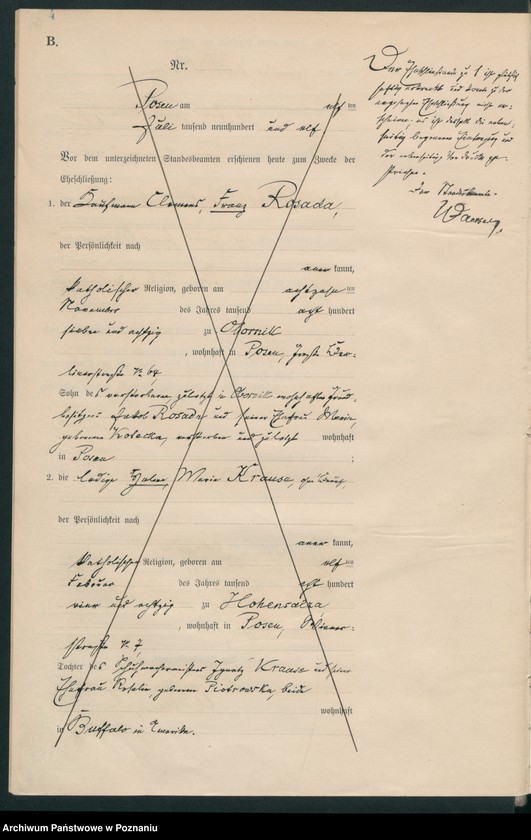 B.
Nr.
Posen am elf ten
Juli tausend neunhundert und elf.
Vor dem unterzeichneten Standesbeamten erschienen heute zum Zwecke der
Eheschließung:
1. der Kaufmann Clemens, Franz Rosada,
der Persönlichkeit nach
kannt,
katholischer Religion, geboren am achtzehn ten
November des Jahres tausend acht hundert
sieben und achtzig zu Obornik
, wohnhaft in Posen, Große Ber-
linerstraße № 64,
Sohn des verstorbenen, zuletzt in Obornik wohnhaften
besitzers Jakob Rosada und seiner Ehefrau Maria,
geborene verstorben und zuletzt wohnhaft
in Posen ;
2. die ledige Maria Krause, ohne Beruf,
der Persönlichkeit nach
kannt,
katholischer Religion, geboren am elf ten
Februar des Jahres tausend acht hundert
vier und achtzig zu Hohensalza
, wohnhaft in Posen,
straße № 7,
Tochter des Schuhmachermeisters Ignatz Krause und seiner
Ehefrau Rosalie, geborenen Piotrowska, beide
wohnhaft
in Buffalo in Amerika.
Der zu 1 ist
und konnte zu der
Eheschließung nicht er-
scheinen. es ist deshalb die neben-
seitig begonnene Eintragung
der
Der Standesbeamte.
Archiwum Państwowe w Poznaniu